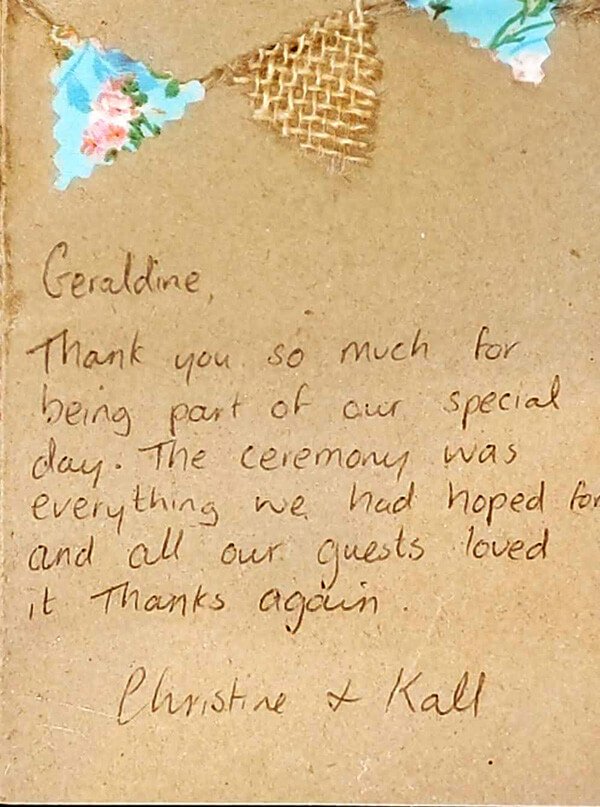 Geraldine,
Thank you so much for
being part of our special
day. The ceremony was
everything we had hoped for
and all our guests loved
it Thanks again.
Christine + Kall